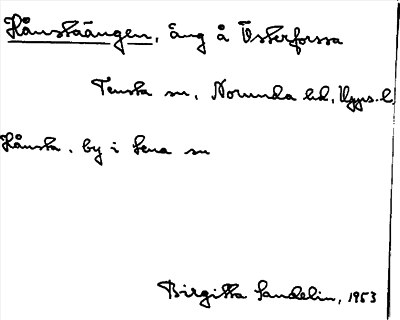 Hånstaängen, äng å Österforssa
Tensta sn, Norunda hd, Upps. l.
Hånsta, by i Lena sn
Birgitta Sandelin, 1953